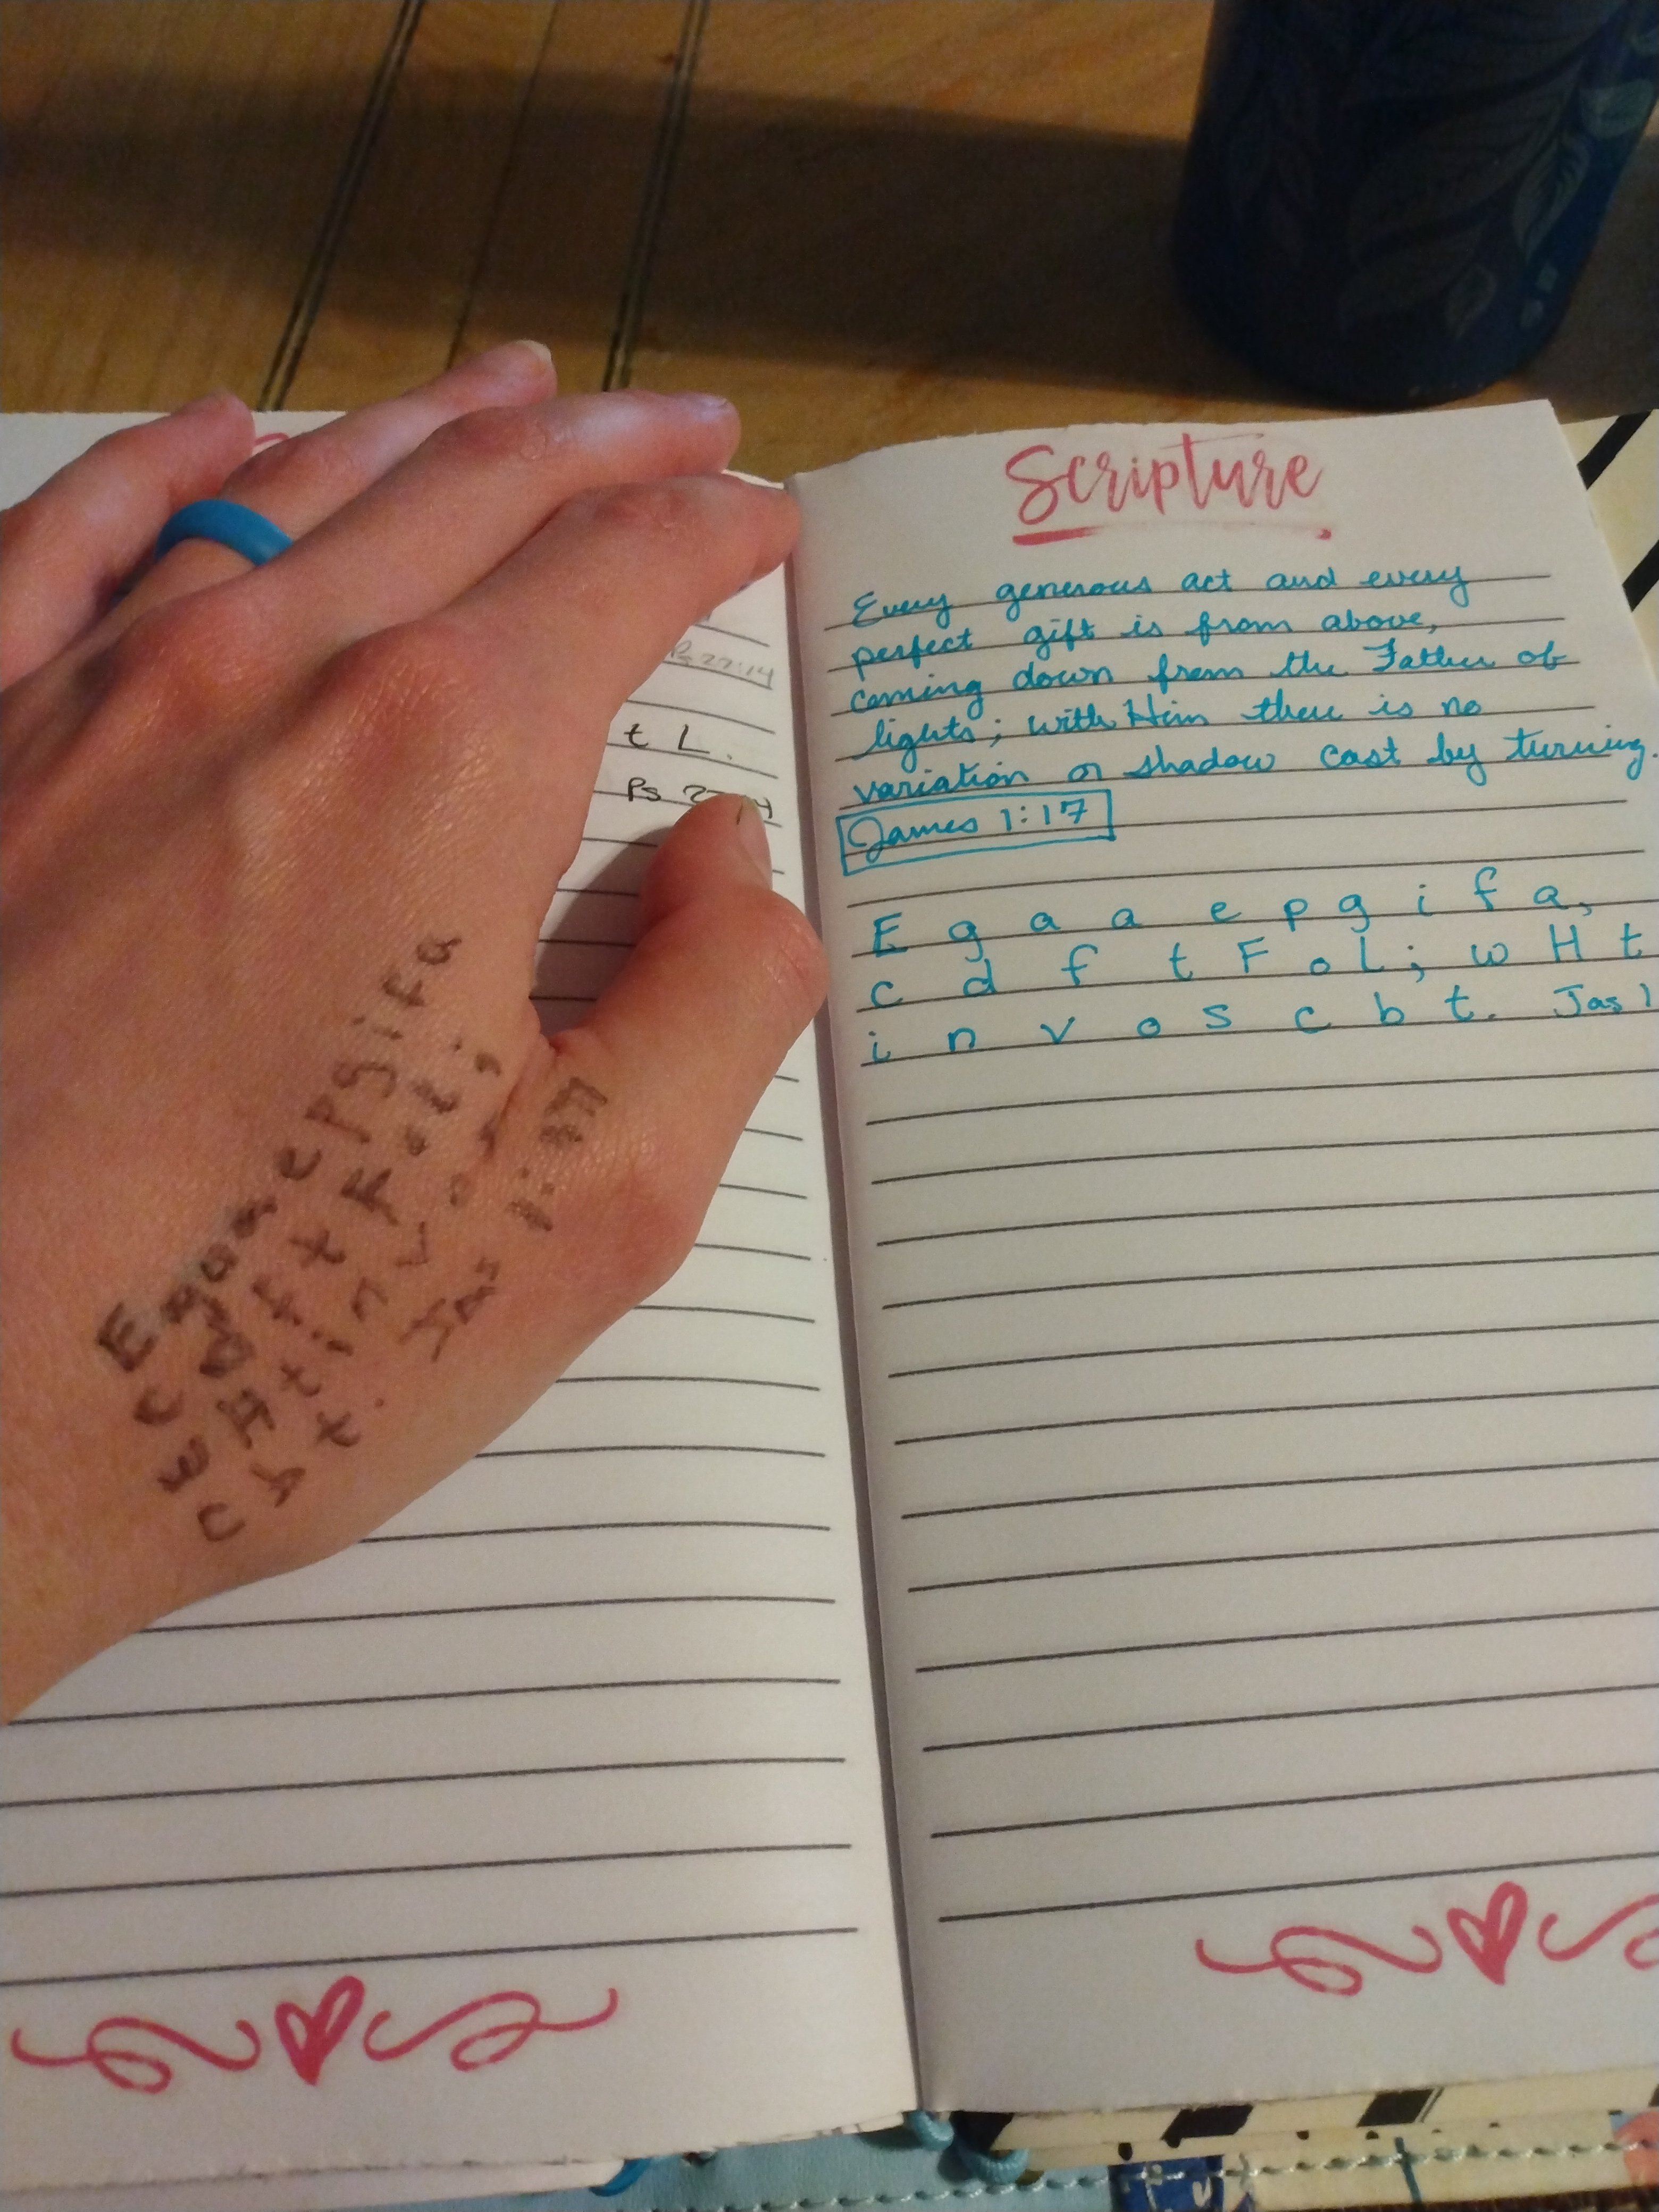 Scripture
Every generous act and every
perfect gift is from above,
coming down from the Father of
lights; with Him there is no
variation or shadow cast by turning.
James 1:17
E g a a e p g i f a,
c d f t F o L; w H t
i n v o s c b t. Jas 1
Ps 27:14
t L.
Ps
E g a a e p g i f a
c d f t F o L ;
w H t i n v o
c b t. Jas 1: